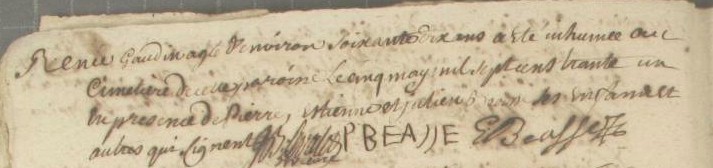 Renee Gaudin agée denviron soixante dix ans a este inhumee au
Cimetiere de cette paroisse le cinq may mil sept cent trante un
en presence de Pierre, estienne et julien ses enfans et
autres qui signent PBEASSE EBeasse